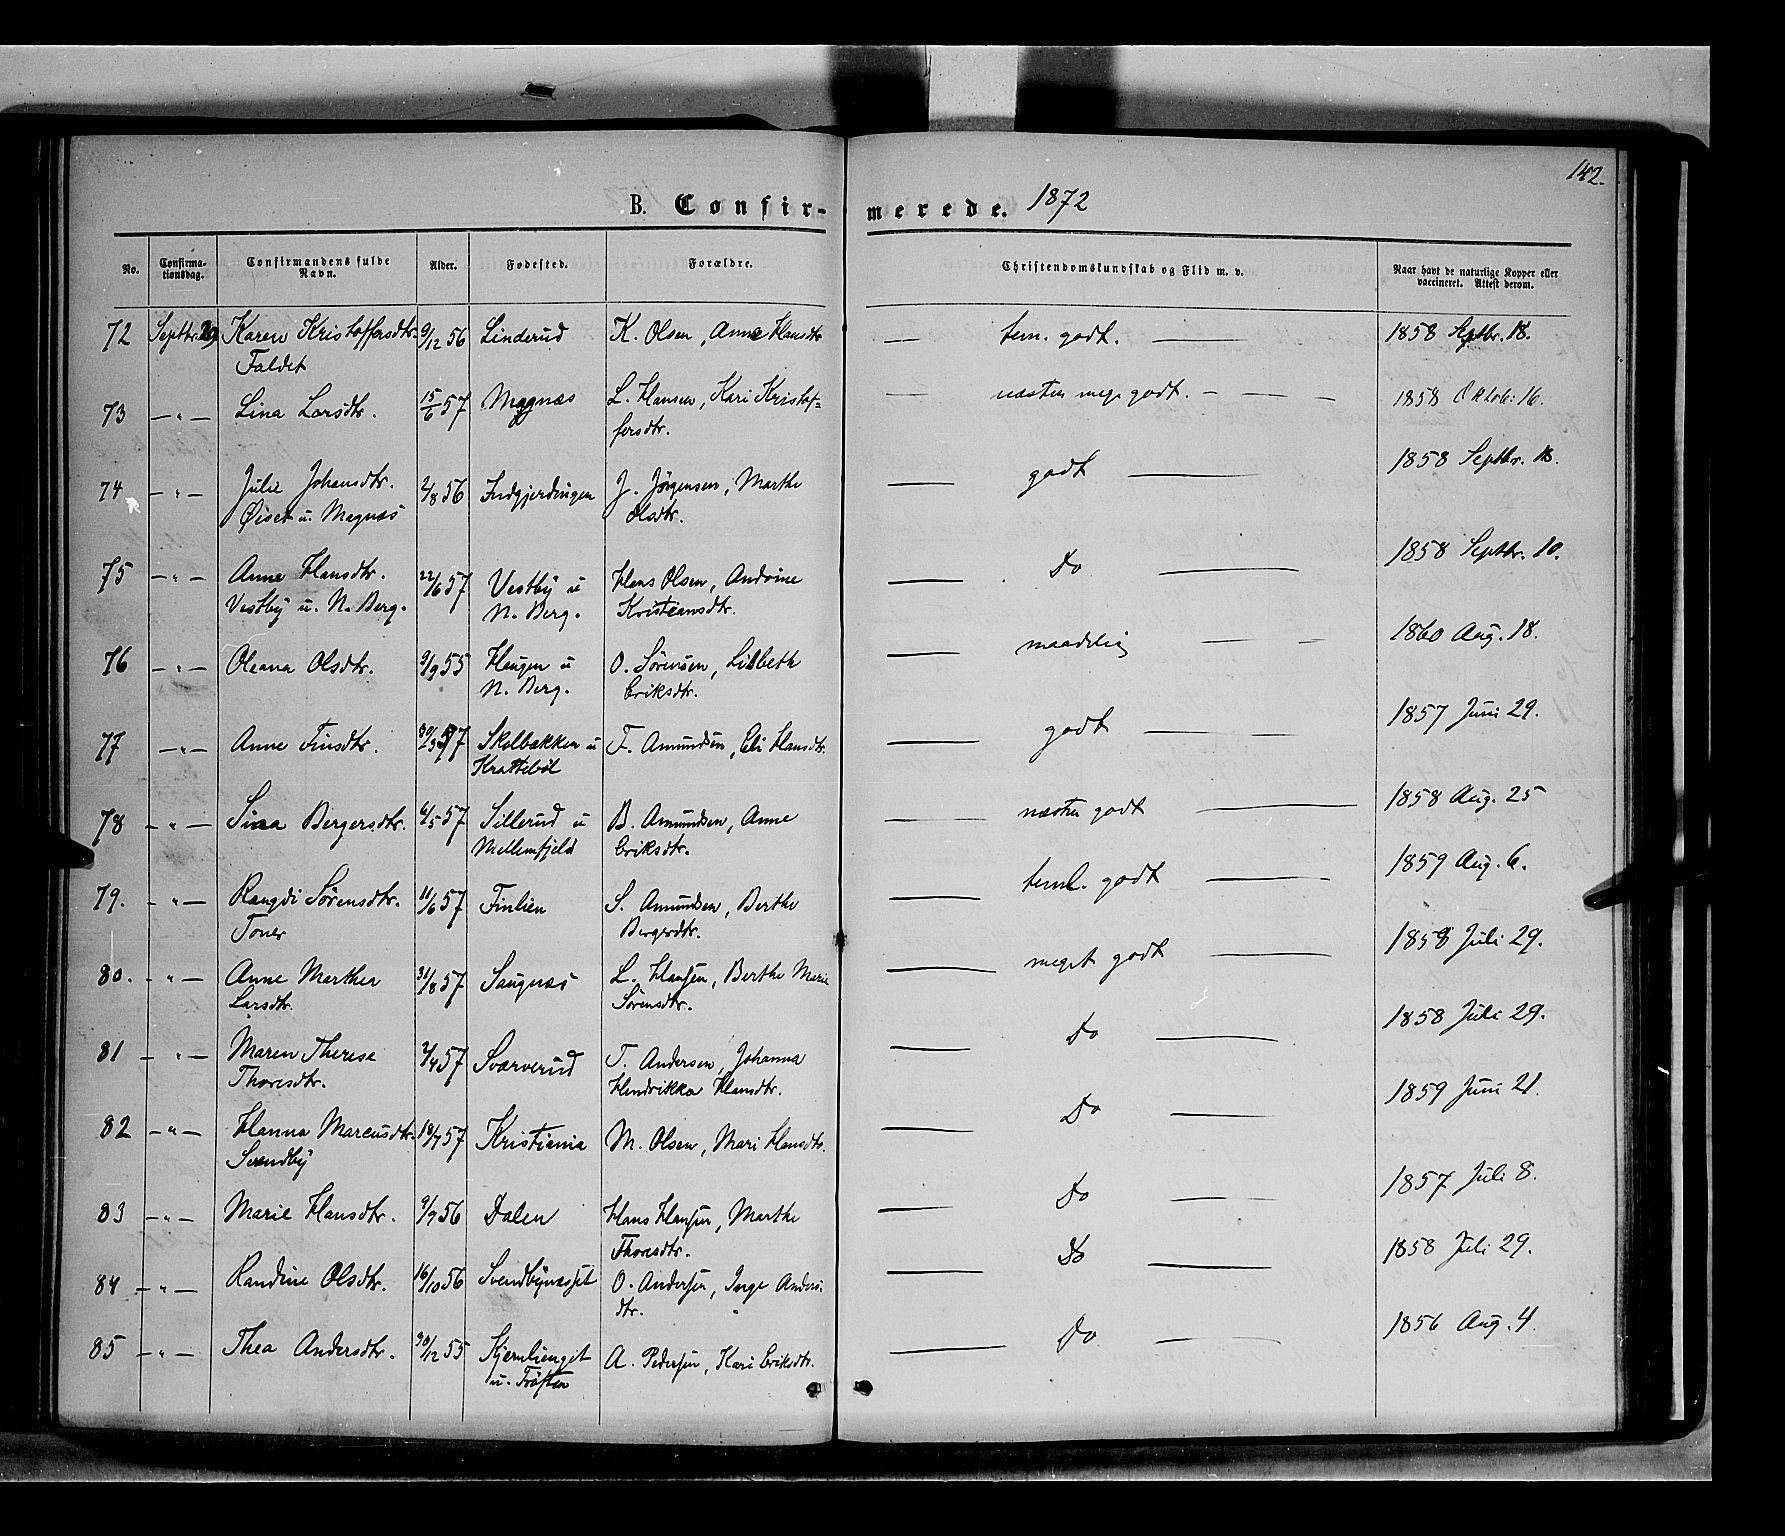 142.
B. Confir- merede. 1872
No. Confirma-tionsdag. Confirmandens fulde Navn. Alder. Fødested. Forældre. Christendomskundskab og Flid m. v. Naar havt de naturlige Kopper eller vaccineret. Attest derom.
72 Septbr. 29 Karen Kristoffersdtr. 9/12 56 Linderud K. Olsen, Anne Hansdtr. — tem. godt. — 1858 Septbr. 18.
Faldet
73 — " — Lina Larsdtr. 15/6 57 Magnæs L. Hansen, Kari Kristof- — næsten meg. godt. — — — 1858 Oktob: 16.
fersdtr.
74 — " — Julie Johansdtr. 2/8 56 Indgjerdingen J. Jørgensen, Marthe — godt — 1858 Septbr. 18.
Øiset u. Magnæs Olsdtr.
75 — " — Anne Hansdtr. 22/6 57 Vestby u Hans Olsen, Andrine — Do — 1858 Septbr. 10.
Vestby u. N. Berg. N. Berg. Kristiansdtr.
76 — " — Oleana Olsdtr. 9/9 55 Haugen u O. Sørensen, Lisbeth — maadelig — — 1860 Aug. 18.
N. Berg. Eriksdtr.
77 — " — Anne Finsdtr. 30/3 57 Skolbækken u F. Amundsen, Eli Hansdtr. — godt — — 1857 Juni 29.
Krattebøl
78 — " — Sina Bergersdtr. 6/5 57 Sillerud u B. Amundsen, Anne — næsten godt — 1858 Aug. 25
Mellemfjeld Eriksdtr.
79. — " — Rangdi Sørensdtr. 11/6 57 Finlien S. Amundsen, Berthe — teml. godt — 1859 Aug. 6.
Toner Bergersdtr.
80. — " — Anne Marthea 31/8 57 Saugnæs L. Hansen, Berthe Marie — meget godt — 1858 Juli 29.
Larsdtr. Sørensdtr.
81 — " — Maren Therese 2/4 57 Sværverud T. Andersen, Johanna — Do — 1858 Juli 29.
Thoresdtr. Hendrikka Hansdtr.
82 — " — Hanna Marcusdtr. 18/7 57 Kristiania M. Olsen, Mari Hansdtr. — Do — 1859 Juni 21.
Svendby
83 — " — Marie Hansdtr. 9/9 56 Dalen Hans Hansen, Marthe — Do — — 1857 Juli 8.
Thoresdtr.
84 — " — Randine Olsdtr. 16/10 56 Svendbynæsset O. Andersen, Inge Anders- — Do — 1858 Juli 29.
dtr.
85 — " — Thea Andersdtr. 30/12 55 Stjernlienget A. Pedersen, Kari Eriksdtr. — Do — — 1856 Aug. 4.
u. Trøften